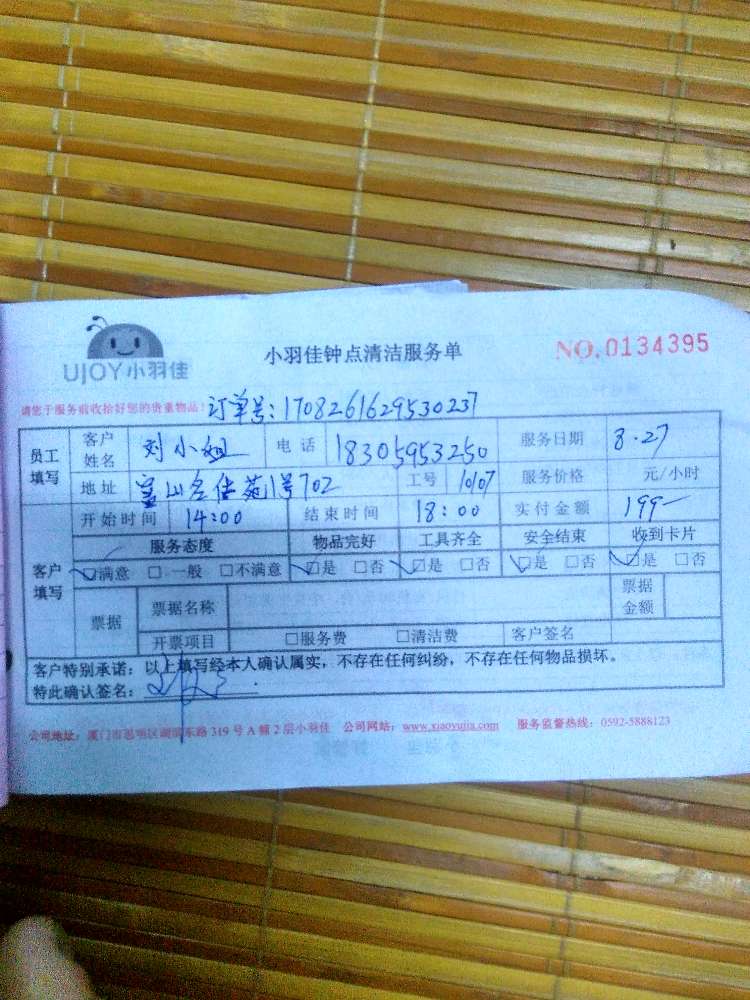 UJOY小羽佳
小羽佳钟点清洁服务单
NO.0134395
请您于服务前收拾好您的贵重物品！
订单号：1708261629530237
员工填写
客户姓名 刘小姐 电话 18305953250 服务日期 8.27
地址 1号702 工号 10107 服务价格 元/小时
开始时间 14:00 结束时间 18:00 实付金额 199-
客户填写
服务态度 物品完好 工具齐全 安全结束 收到卡片
☑满意 □一般 □不满意 ☑是 □否 ☑是 □否 ☑是 □否 ☑是 □否
票据 票据名称 票据金额
开票项目 □服务费 □清洁费 客户签名
客户特别承诺：以上填写经本人确认属实，不存在任何纠纷，不存在任何物品损坏。
特此确认签名：
公司地址：厦门市思明区湖滨东路 319 号 A 幢 2 层小羽佳 公司网站：www.xiaoyujia.com 服务监督热线：0592-5888123